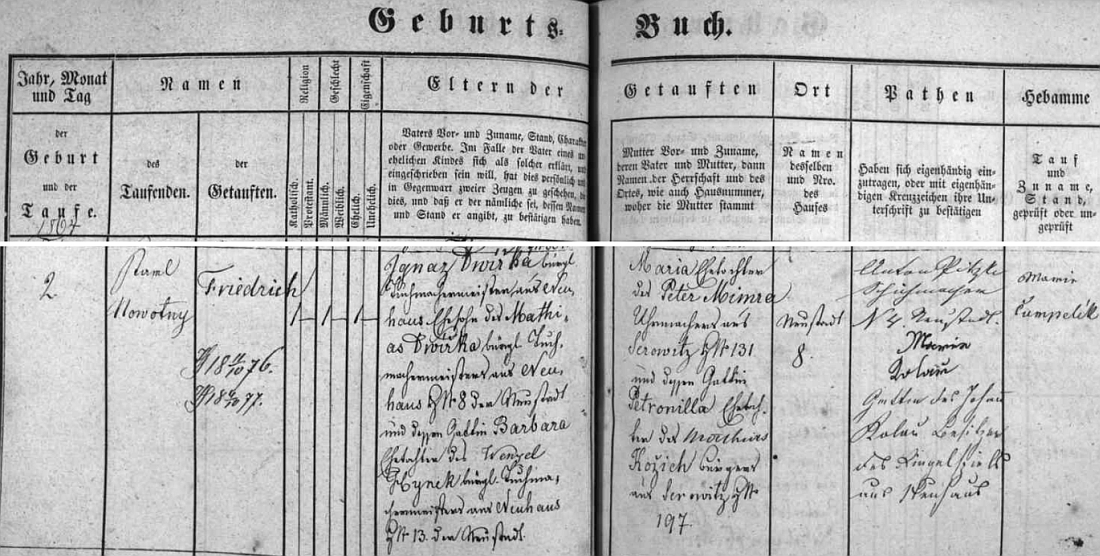 Geburts-Buch.
Jahr, Monat
und Tag
der
Geburt
und der
Taufe.
1864
Namen
des
Taufenden.
der
Getauften.
Religion
Geschlecht
Eigenschaft
Katholisch.
Protestant.
Männlich.
Weiblich.
Ehelich.
Unehelich.
Eltern der
Vaters Vor- und Zuname, Stand, Charakter
oder Gewerbe. Im Falle der Vater eines un-
ehelichen Kindes sich als solcher erklärt, und
eingeschrieben sein will, hat dies persönlich und
in Gegenwart zweier Zeugen zu geschehen, die
dies, und daß er der nämliche sei, dessen Namen
und Stand er angibt, zu bestätigen haben.
Getauften
Mutter Vor- und Zuname,
deren Vater und Mutter, dann
Namen der Herrschaft und des
Ortes, wie auch Hausnummer,
woher die Mutter stammt
Ort
Namen
desselben
und Nro.
des
Hauses
Pathen
Haben sich eigenhändig ein-
zutragen, oder mit eigenhän-
digen Kreuzzeichen ihre Un-
terschrift zu bestätigen
Hebamme
Tauf
und
Zuname,
Stand,
geprüft oder un-
geprüft
2
Karl
Nowotny
Friedrich
76.
77.
Ignaz Dwirka bürgl.
Tuchmachermeister aus Neu-
haus Ehesohn des Mathi-
as Dwirka bürgl. Tuch-
machermeisters aus Neu-
haus N 8 der Neustadt
und dessen Gattin Barbara
Ehetochter des Wenzel
Hynek bürgl. Tuchma-
chermeisters aus Neuhaus
N 13. der Neustadt.
Maria Ehetochter
des Peter Mimra
Uhrmachers aus
Serowitz N 131
und dessen Gattin
Petronilla Ehetoch-
ter des Mathias
Kožich bürgers
aus Serowitz N
197.
Neustadt
8.
Anton
Schuhmacher
N 4. Neustadt.
Maria
Kolau
Gattin des Johan
Kolau Besitzer
des
aus Neuhaus
Marie